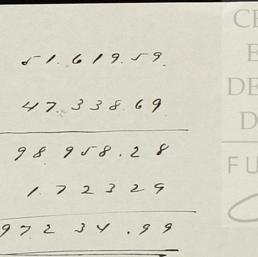 51.619.59
47.338.69
98 958.28
1.723 29
97 2 34.99
CE
E
DE
D
FU